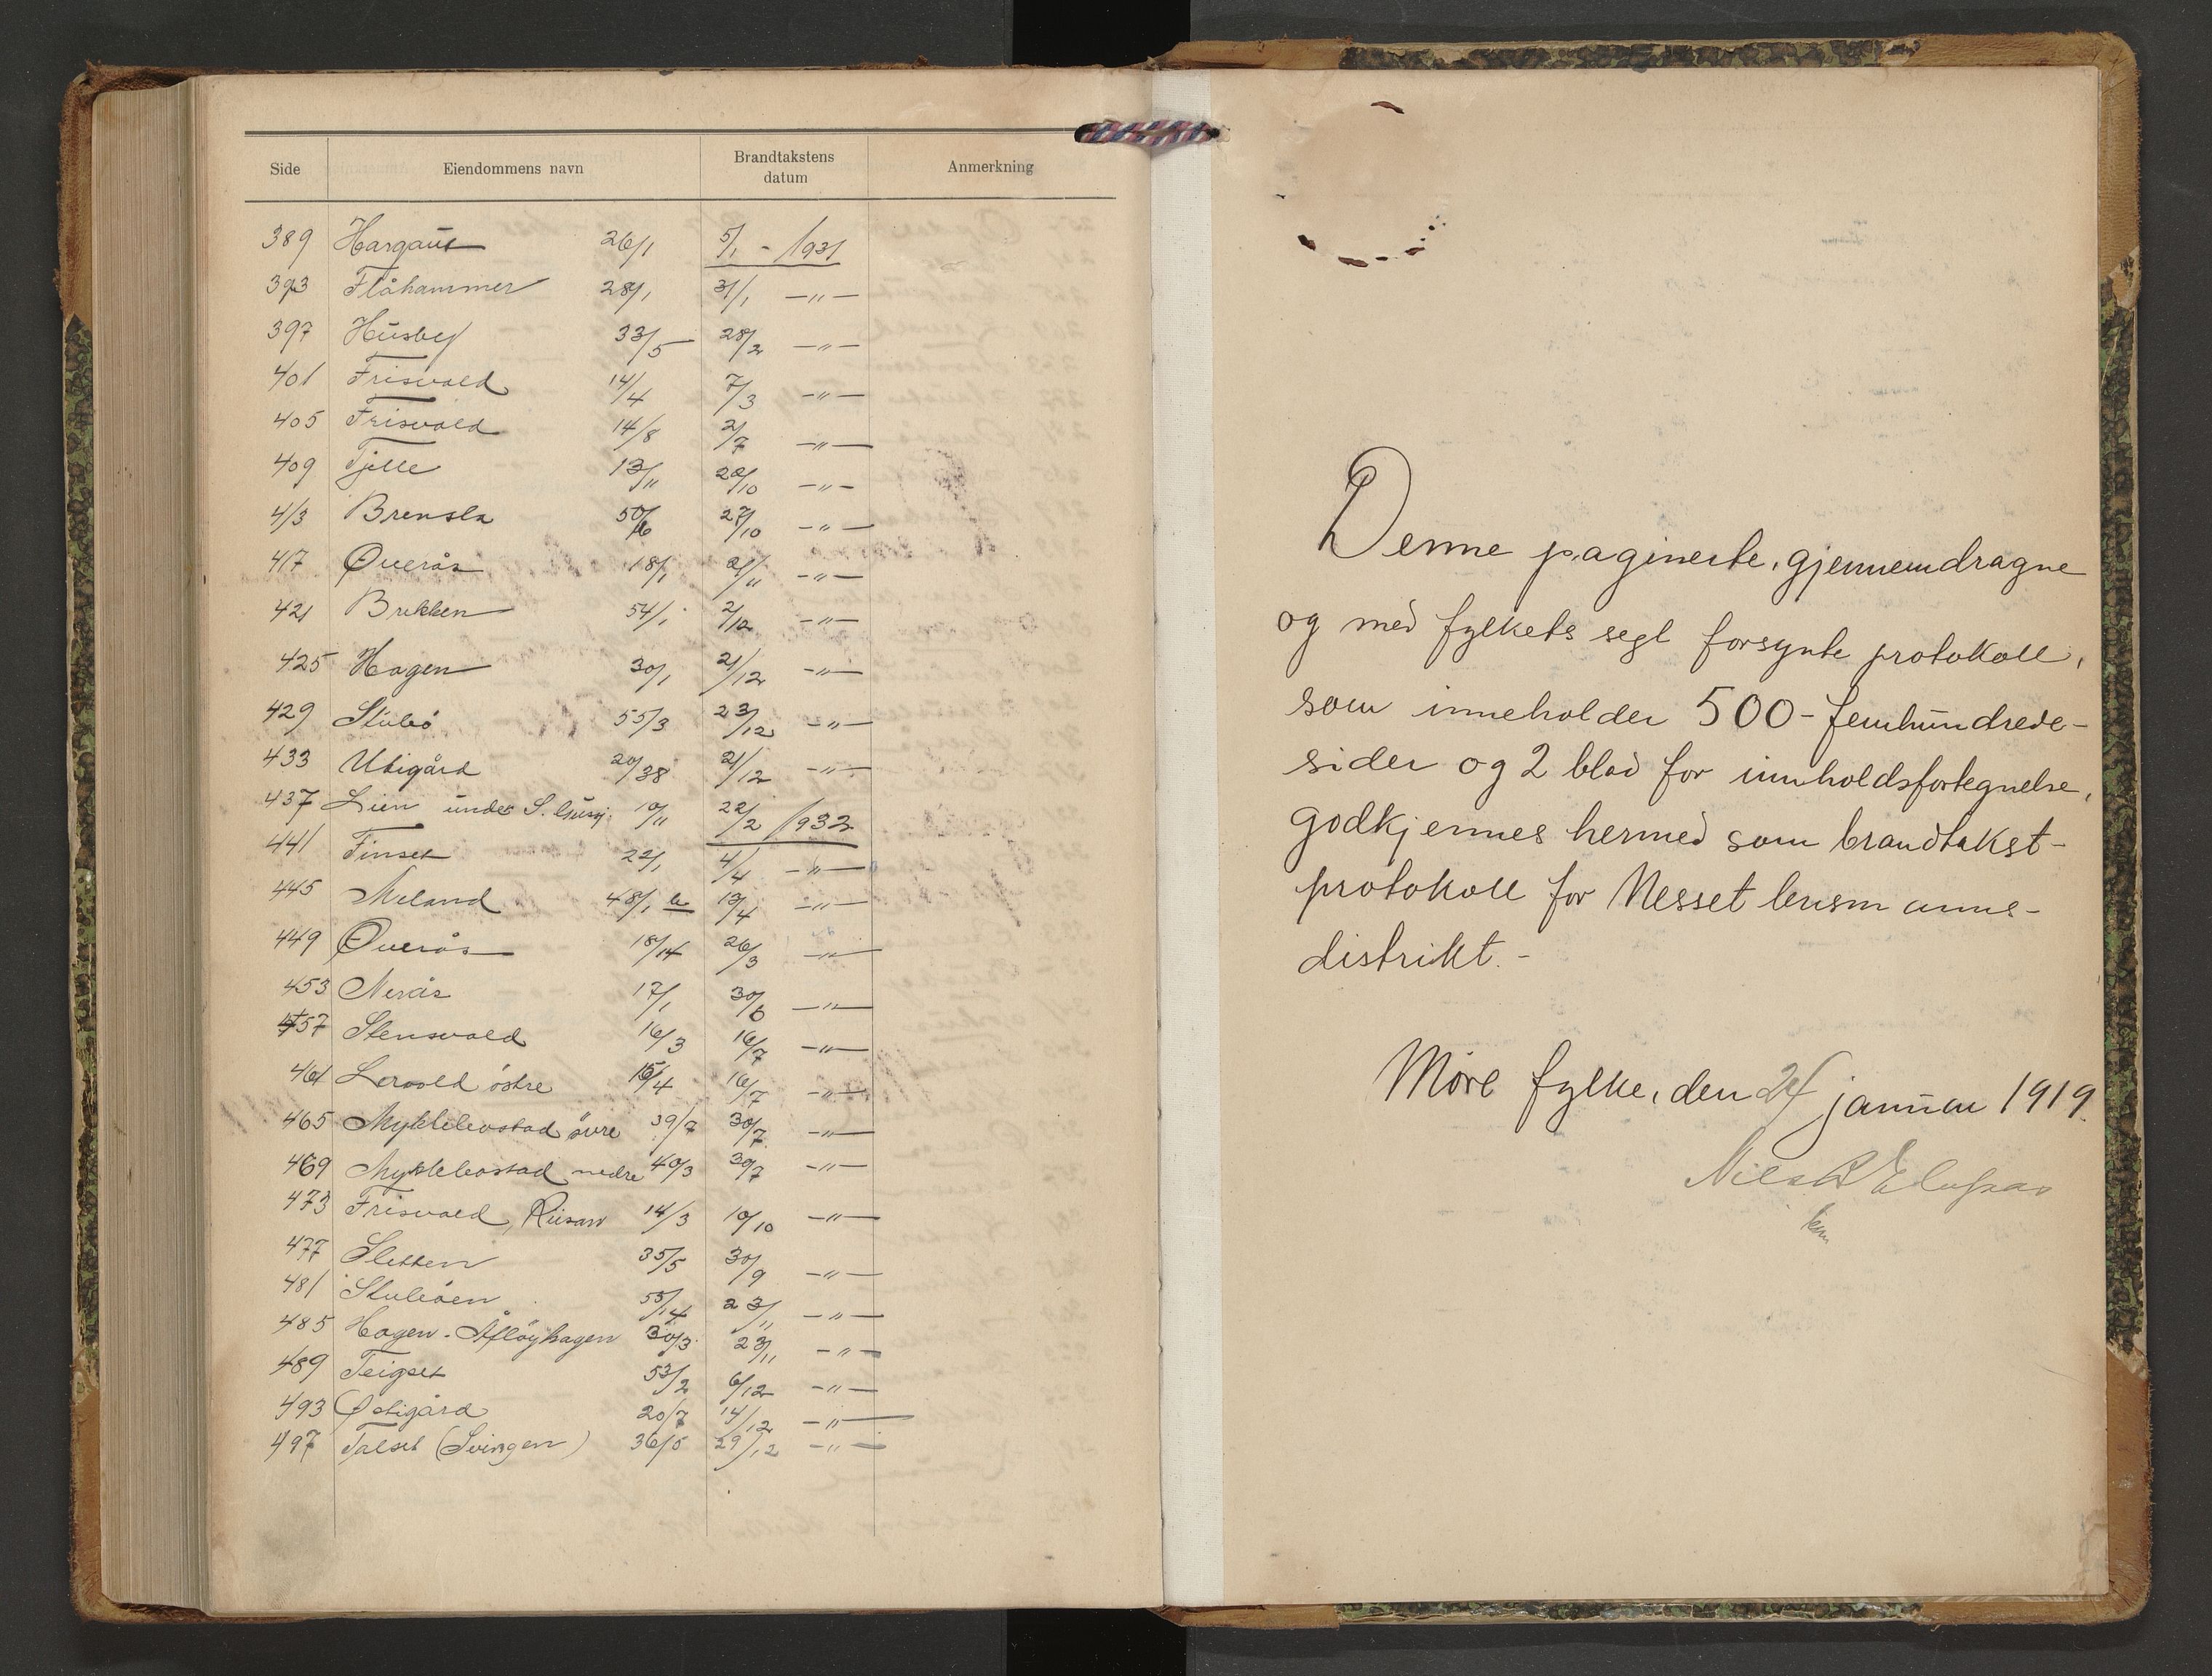 Side Eiendommens navn Brandtakstens datum Anmerkning
389 Hargaut 26/1 5/1 - 1931
393 Flåhammer 28/1 31/1 -"-
397 Husby 33/5 28/2 -"-
401 Frisvold 14/4 7/3 -"-
405 Frisvold 14/8 2/7 -"-
409 Tjelle 13/11 20/10 -"-
413 Brensla 50/6 27/10 -"-
417 Øverås 18/1 21/11 -"-
421 Brekken 54/1 2/12 -"-
425 Hagen 30/1 21/12 -"-
429 Stubö 55/3 23/12 -"-
433 Utigård 20/38 21/12 -"-
437 Lien under S. 10/11 22/2 1932
441 Finset 22/1 4/4 -"-
445 Meland 48/1 b 13/4 -"-
449 Øverås 18/14 26/3 -"-
453 Nerås 17/1 30/6 -"-
457 Stensvold 16/3 16/7 -"-
461 Lervold östre 15/4 16/7 -"-
465 Myklebostad övre 39/7 30/7 -"-
469 Myklebostad nedre 40/3 30/7 -"-
473 Frisvold, Risan 14/3 10/10 -"-
477 Sletten 35/5 30/9 -"-
481 Stuböen 55/14 23/11 -"-
485 Hagen - Åfløyhagen 30/3 23/11 -"-
489 Teigset 53/2 6/12 -"-
493 Østigård 20/7 14/12 -"-
497 Talset (Svingen) 36/5 29/12 -"-
Denne paginerte, gjennemdragne
og med fylkets segl forsynte protokoll,
som inneholder 500 - femhundrede -
sider og 2 blad for innholdsfortegnelse,
godkjennes hermed som brandtakst-
protokoll for Nesset lensmanns-
distrikt. -
Møre fylke, den 24 januar 1919.